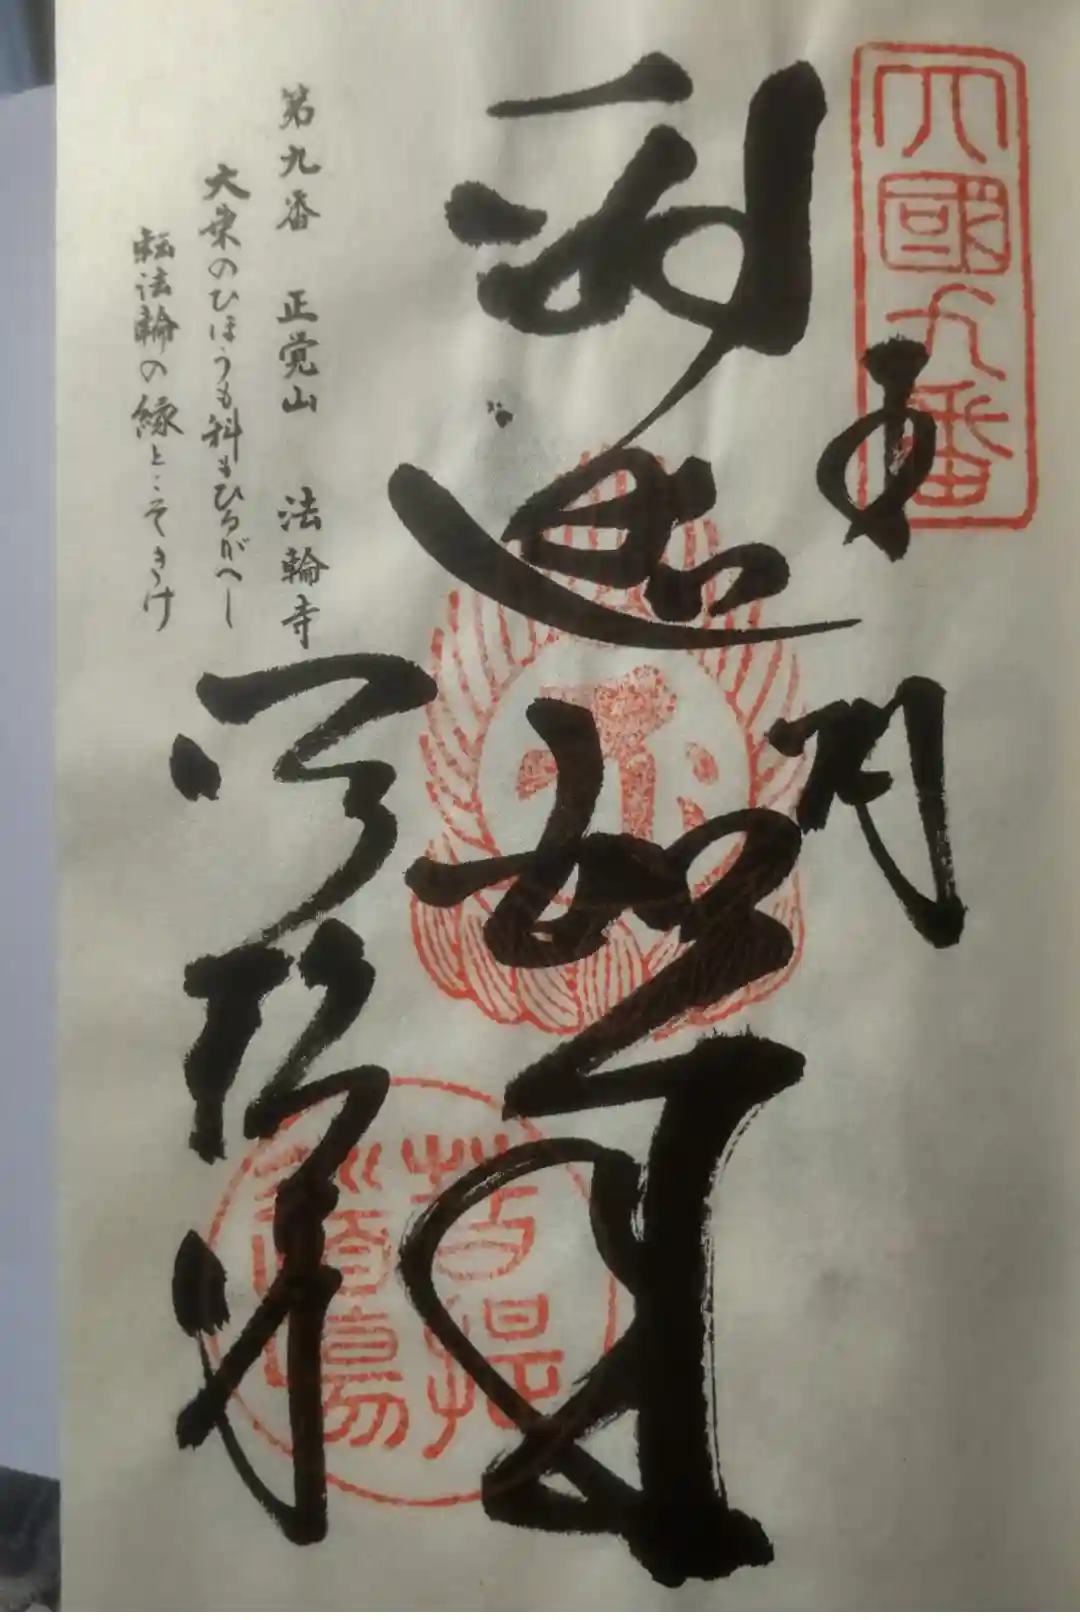 四國九番
奉
納
釈迦如来
第九番 正覚山 法輪寺
大乗のひほうも科もひるがへし
転法輪の縁とこそきけ
菩提道場